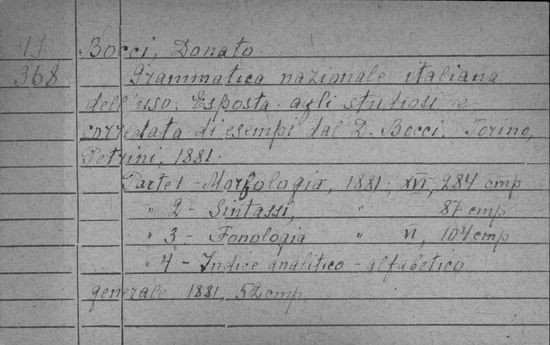 15 Bocci, Donato.
368 Grammatica nazionale italiana
dell'uso. Esposta agli studiosi e
corredata di esempi dal D. Bocci. Torino,
Petrini, 1881.
Parte 1 - Morfologia, 1881, XVI, 284 cmp
" 2 - Sintassi, " 87 cmp
" 3 - Fonologia " VI, 104 cmp
" 4 - Indice analitico - alfabetico
generale 1881, 52 cmp